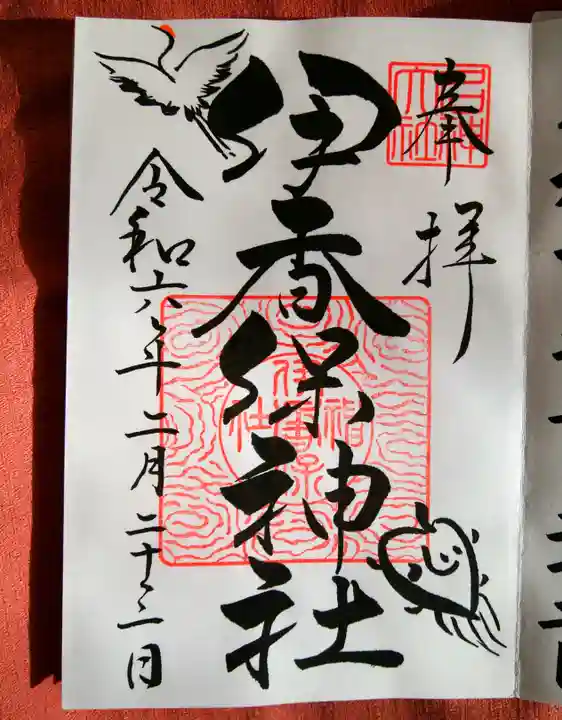 奉拝
名神大社
伊香保神社
令和六年二月二十三日